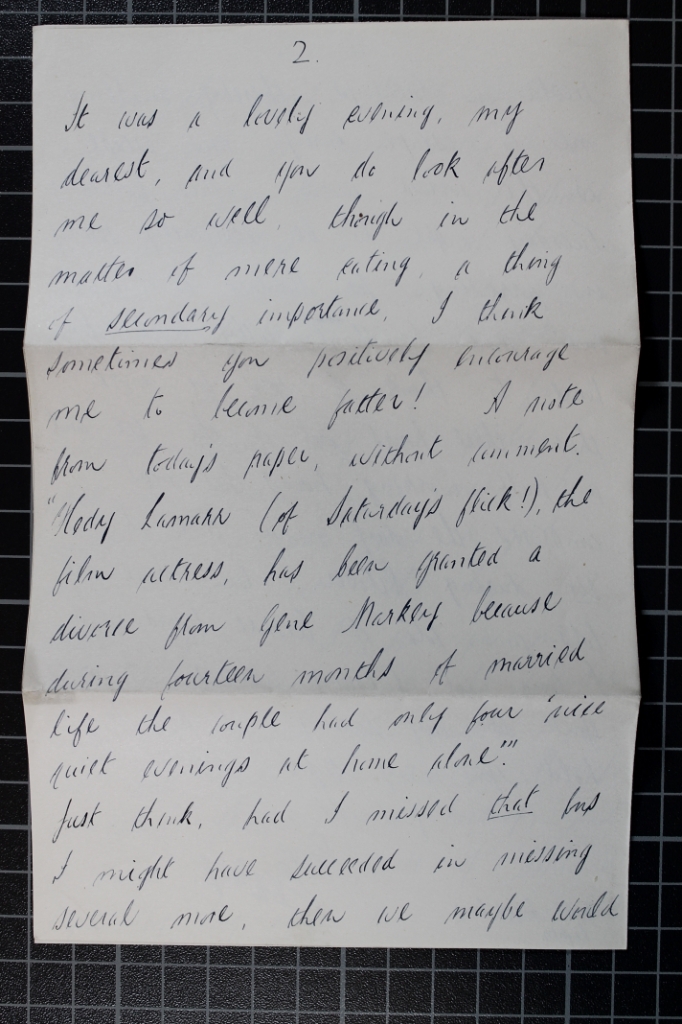 2.
It was a lovely evening, my
dearest, and you do look after
me so well, though in the
matter of mere eating, a thing
of secondary importance, I think
sometimes you positively encourage
me to become fatter! A note
from today's paper, without comment.
"Hedy Lamarr (of Saturday's flick!), the
film actress, has been granted a
divorce from Gene Markey because
during fourteen months of married
life the couple had only four 'nice
quiet evenings at home alone'."
Just think, had I missed that bus
I might have succeeded in missing
several more, then we maybe would